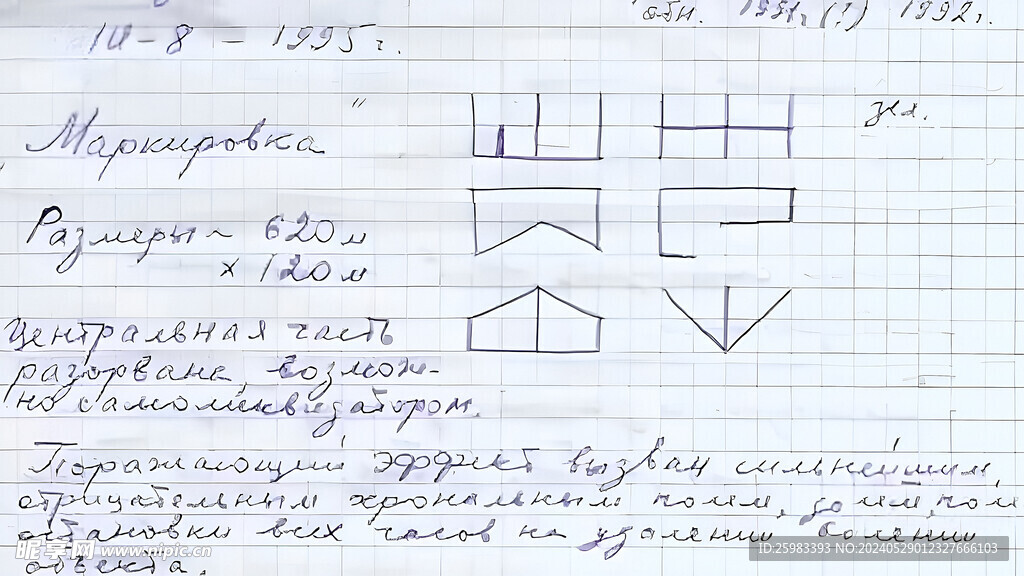 обн. 1991г. (?) 1992г.
10-8-1995г.
Маркировка " зел.
Размеры ~ 620 м
× 120 м
Центральная часть
разорвана, возмож-
но самоликвидатором.
Поражающий эффект вызван сильнейшим
отрицательным хрональным полем,
остановки всех часов на удалении
объекта.
昵享网 www.nipic.cn
ID:25983393 NO:20240529012327666103